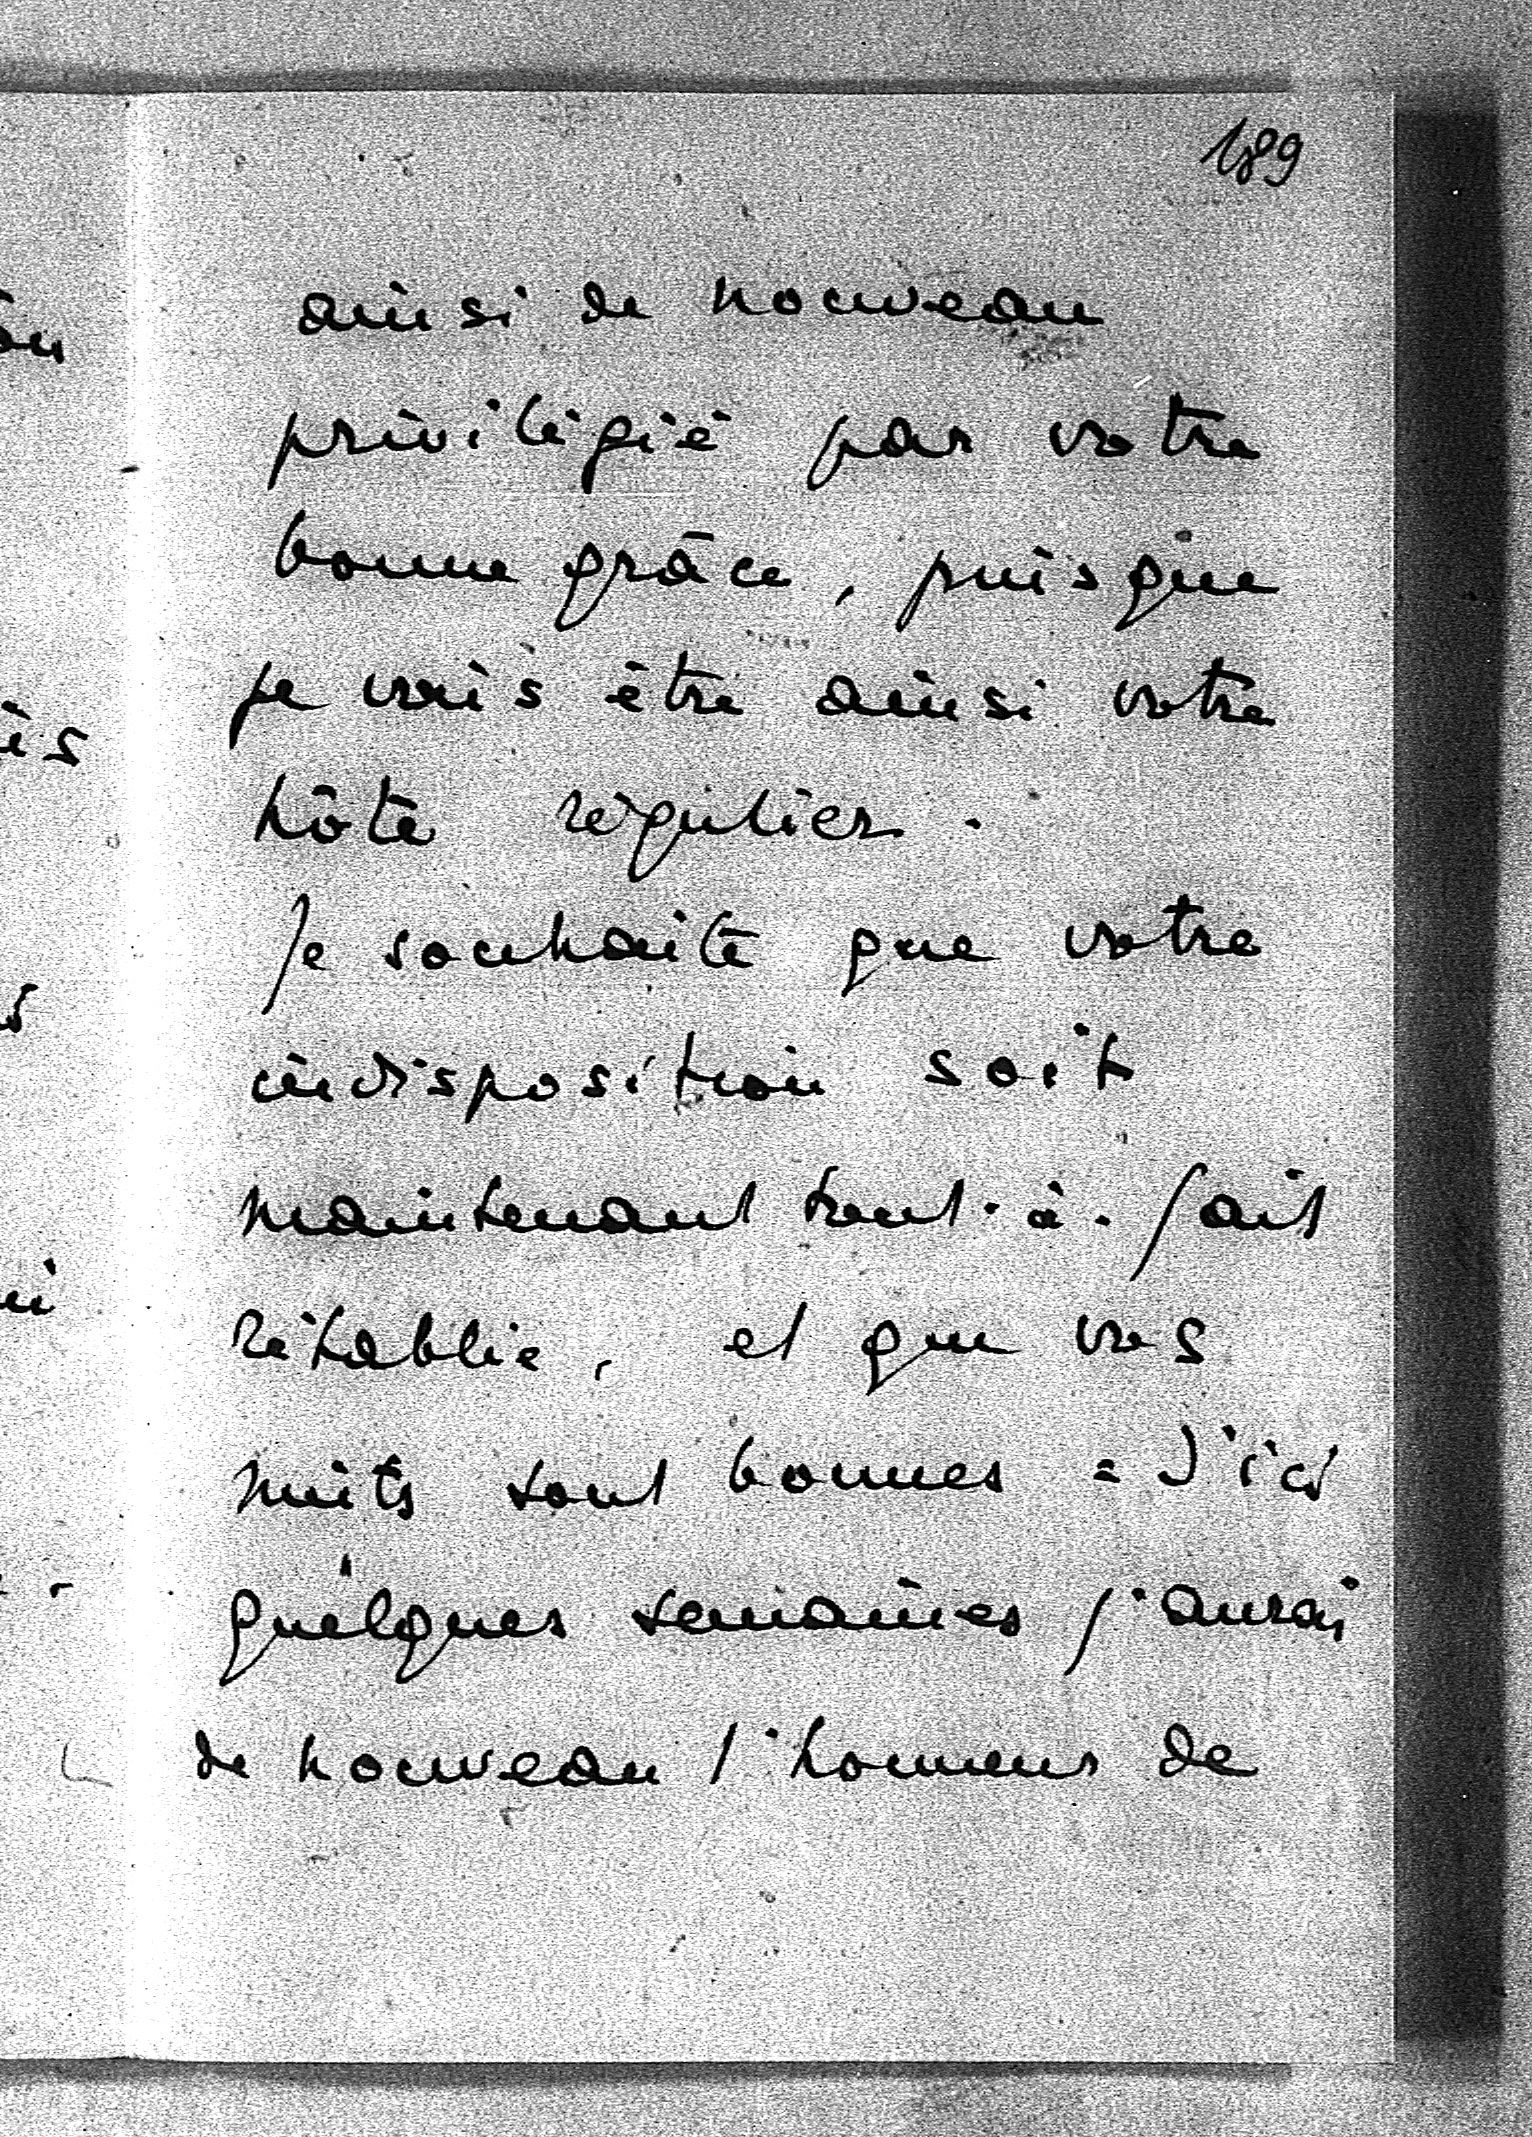 189
ainsi de nouveau
privilégié par votre
bonne grâce, puisque
je vais être ainsi votre
hôte régulier.
Je souhaite que votre
indisposition soit
maintenant tout-à-fait
rétablie, et que vos
nuits sont bonnes = D'ici
quelques semaines j'aurai
de nouveau l'honneur de